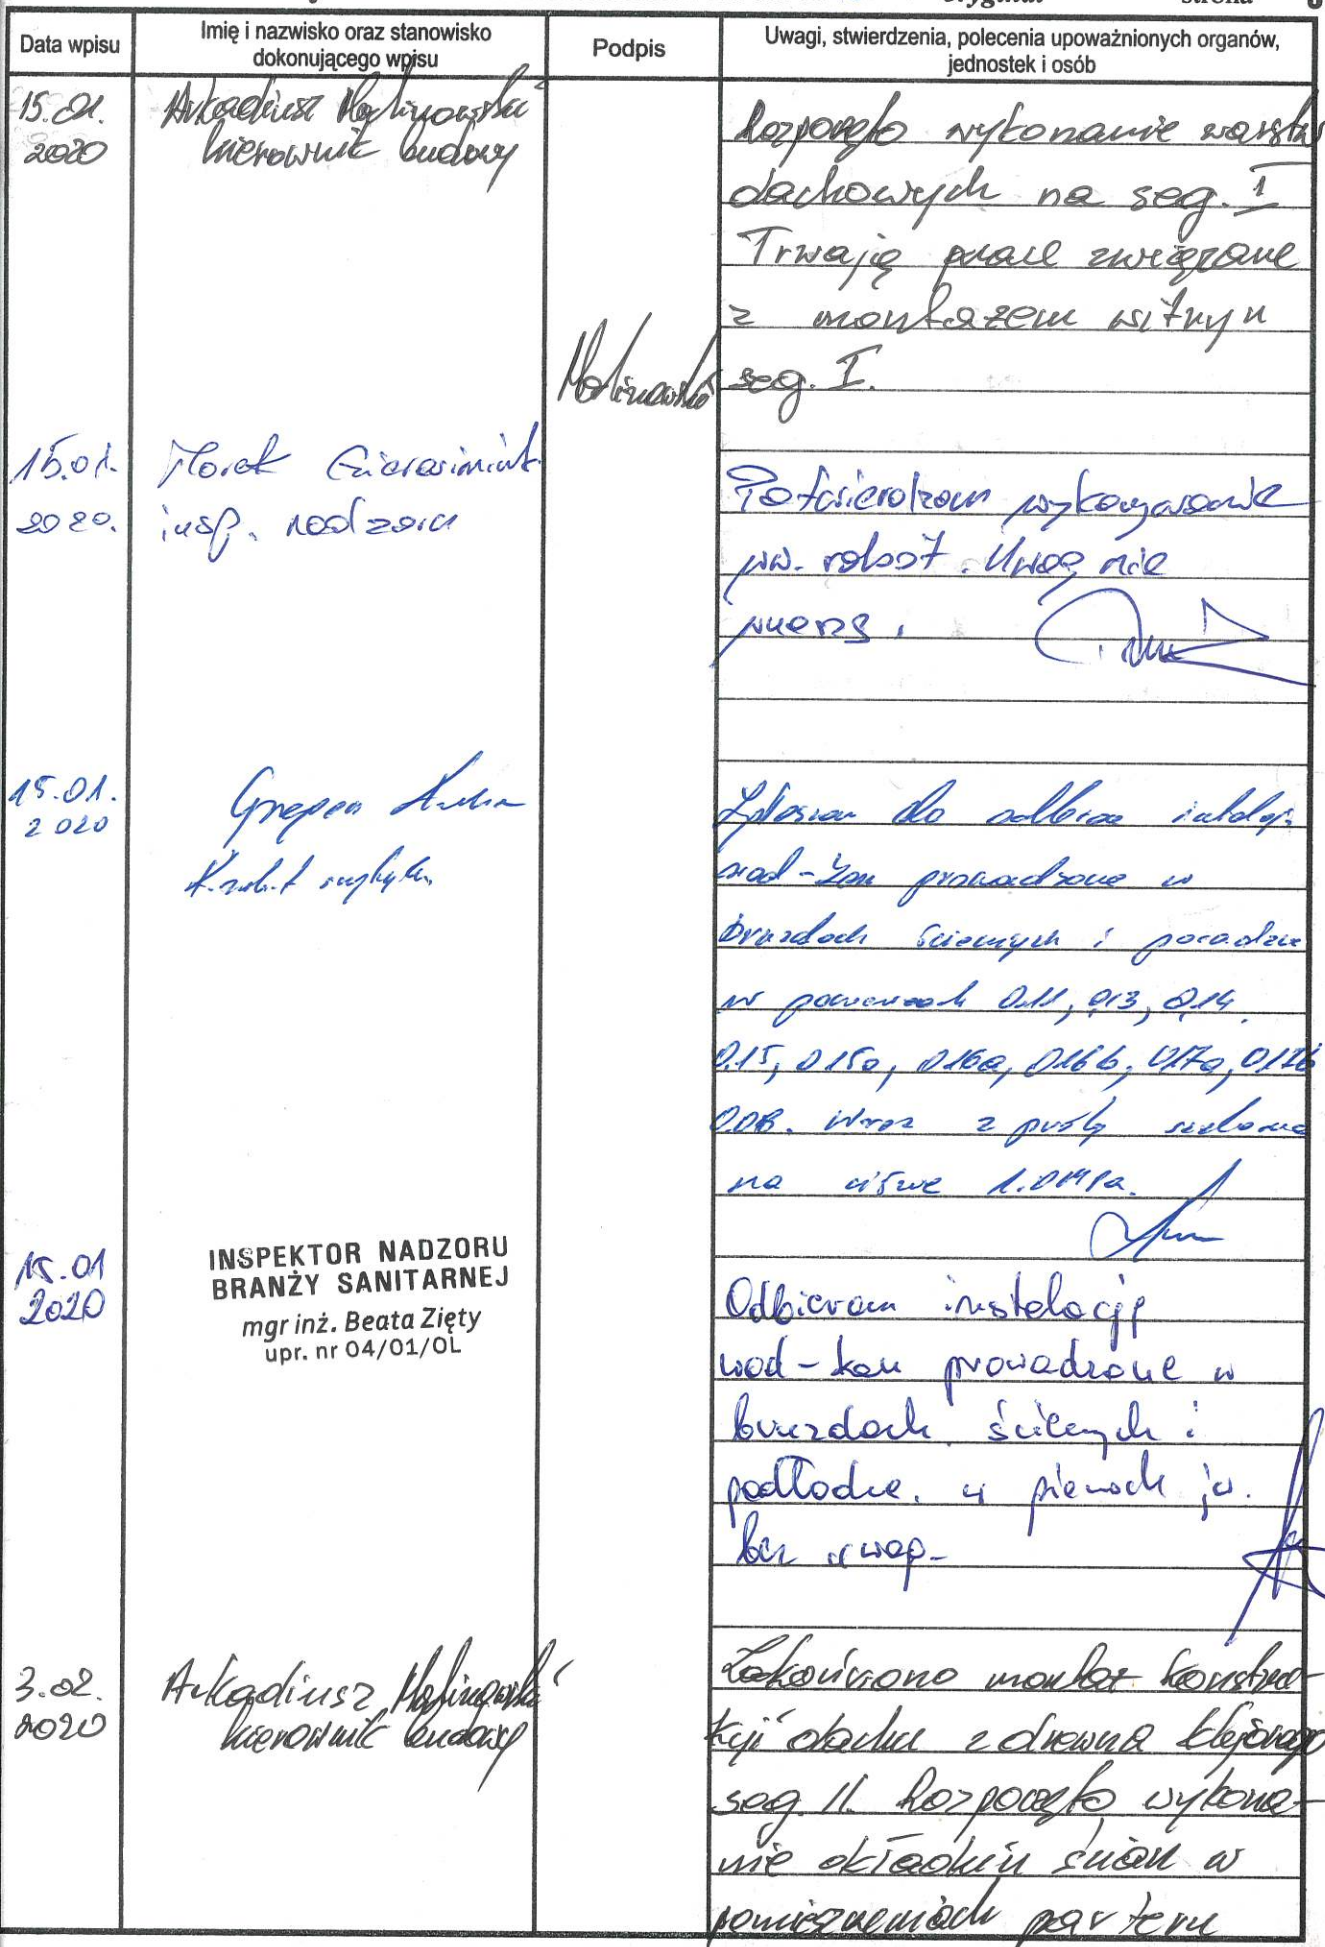 Oryginał strona
Data wpisu
Imię i nazwisko oraz stanowisko
dokonującego wpisu
Podpis
Uwagi, stwierdzenia, polecenia upoważnionych organów,
jednostek i osób
15.01.
2020
Arkadiusz Malinowski
kierownik budowy
Rozpoczęto wykonanie warstw
dachowych na seg. I
Trwają prace związane
z montażem witryn
seg. I.
Malinowski
15.01.
2020.
Marek
insp. nadzoru
Potwierdzam wykonywanie
ww. robót. Uwag nie
wnoszę.
15.01.
2020
Zgłaszam do odbioru instalacje
wod-kan prowadzone w
bruzdach ściennych i posadzce
w pomieszczeniach 0.11, 013, 0.14
0.15, 015a, 016a, 016b, 017a, 017b
008. Wraz z próbą szczelności
na ciśnienie 1.0 MPa.
15.01
2020
INSPEKTOR NADZORU
BRANŻY SANITARNEJ
mgr inż. Beata Zięty
upr. nr 04/01/OL
Odbieram instalację
wod-kan prowadzone w
bruzdach ściennych i
podłodze. w jw.
bez uwag-
3.02.
2020
Arkadiusz Malinowski
kierownik budowy
Zakończono montaż konstruk-
cji dachu z drewna klejonego
seg. II. Rozpoczęto wykona-
nie okładzin ścian w
pomieszczeniach parteru